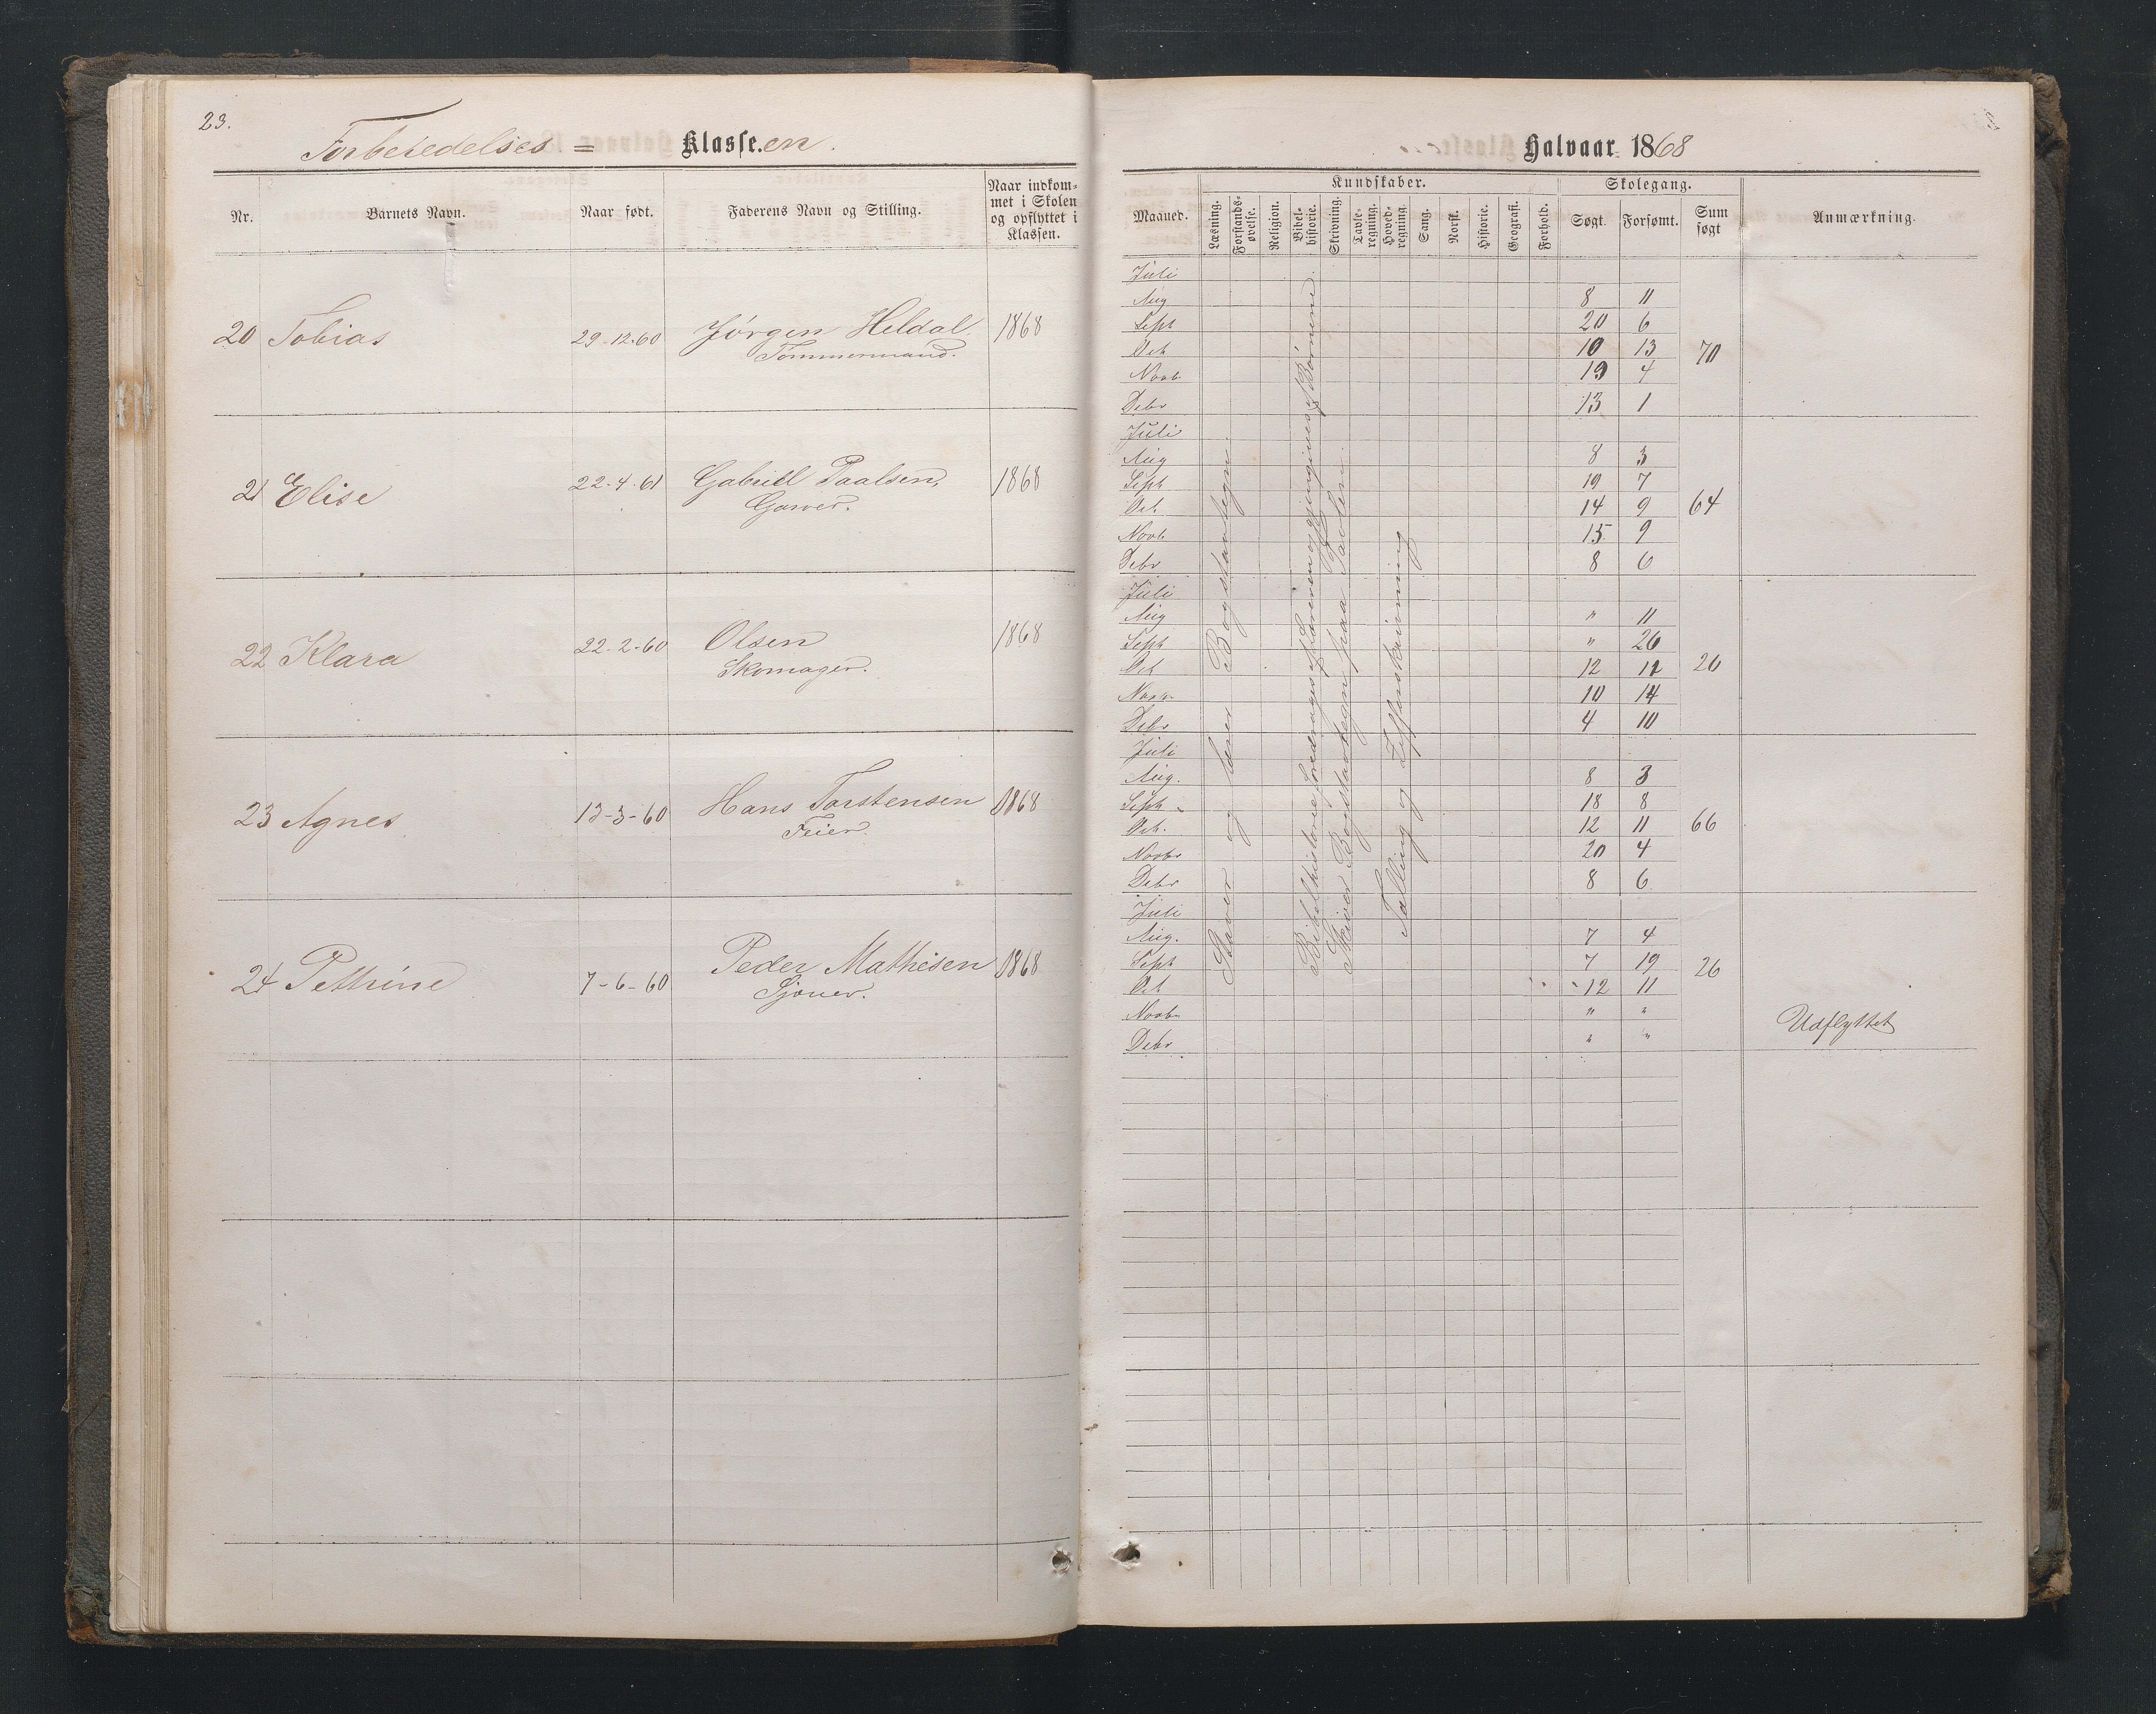 23.
Forberedelses = Klasse.en.
Nr. Barnets Navn. Naar født. Faderens Navn og Stilling. Naar indkom-
met i Skolen
og opflyttet i
Klassen.
20 Tobias 29-12-60 Jørgen Heldal 1868
Tømmermand.
21 Elise 22-4-61 Gabriel Paalsen, 1868
Garver.
22 Klara 22-2-60 Olsen 1868
Skomager.
23 Agnes 12-3-60 Hans Torstensen 1868
Feier.
24 Pethrine 7-6-60 Peder Mathisen 1868
Sjouer.
Halvaar 1868
Kundskaber. Skolegang.
Maaned. Læsning. Forstands-
øvelse. Religion. Bibel-
historie. Skrivning. Tavle-
regning. Hoved-
regning. Sang. Norsk. Historie. Geografi. Forhold. Søgt. Forsømt. Sum
søgt Anmærkning.
Juli
Aug 8 11
Sept 20 6
Oct 10 13 70
Novb 19 4
Debr 13 1
Juli
Aug 8 3
Sept 19 7
Oct. 14 9 64
Novb 15 9
Debr 8 6
Juli
Aug " 11
Sept " 26
Oct 12 11 26
Novb. 10 14
Debr 4 10
Juli
Aug. 8 3
Sept 18 8
Oct. 12 11 66
Novbr 20 4
Debr 8 6
Juli
Aug. 7 4
Sept 7 19 26
Oct 12 11
Novb " "
Debr " " Udflyttet
Staver og lærer Bogstavtegn.
Bibelhistorie foredrages af Læreren og gjengives af Børnene.
Skriver Bogstavtegn paa Tavlen.
Tælling og Zifferskrivning